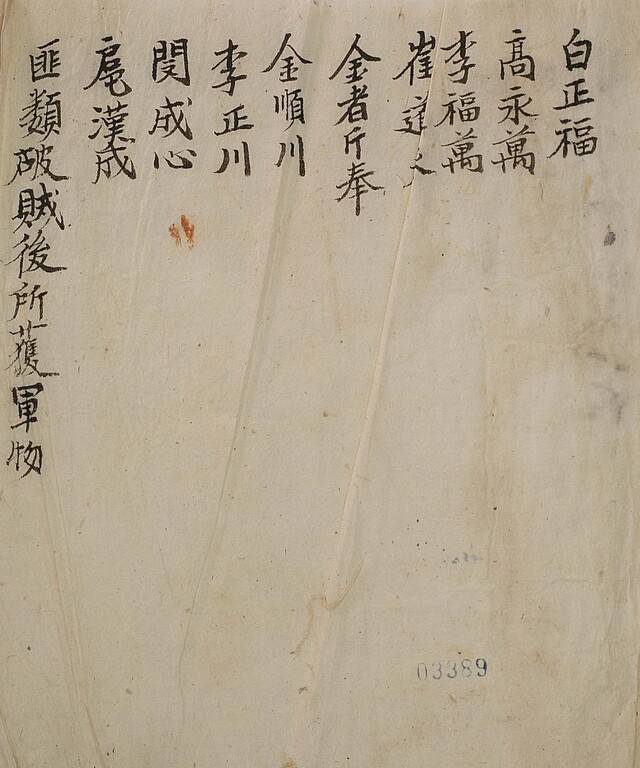 白正福
高永萬
李福萬
崔達
金者斤奉
金順川
李正川
閔成心
漢成
匪類破賊後所獲軍物
03389